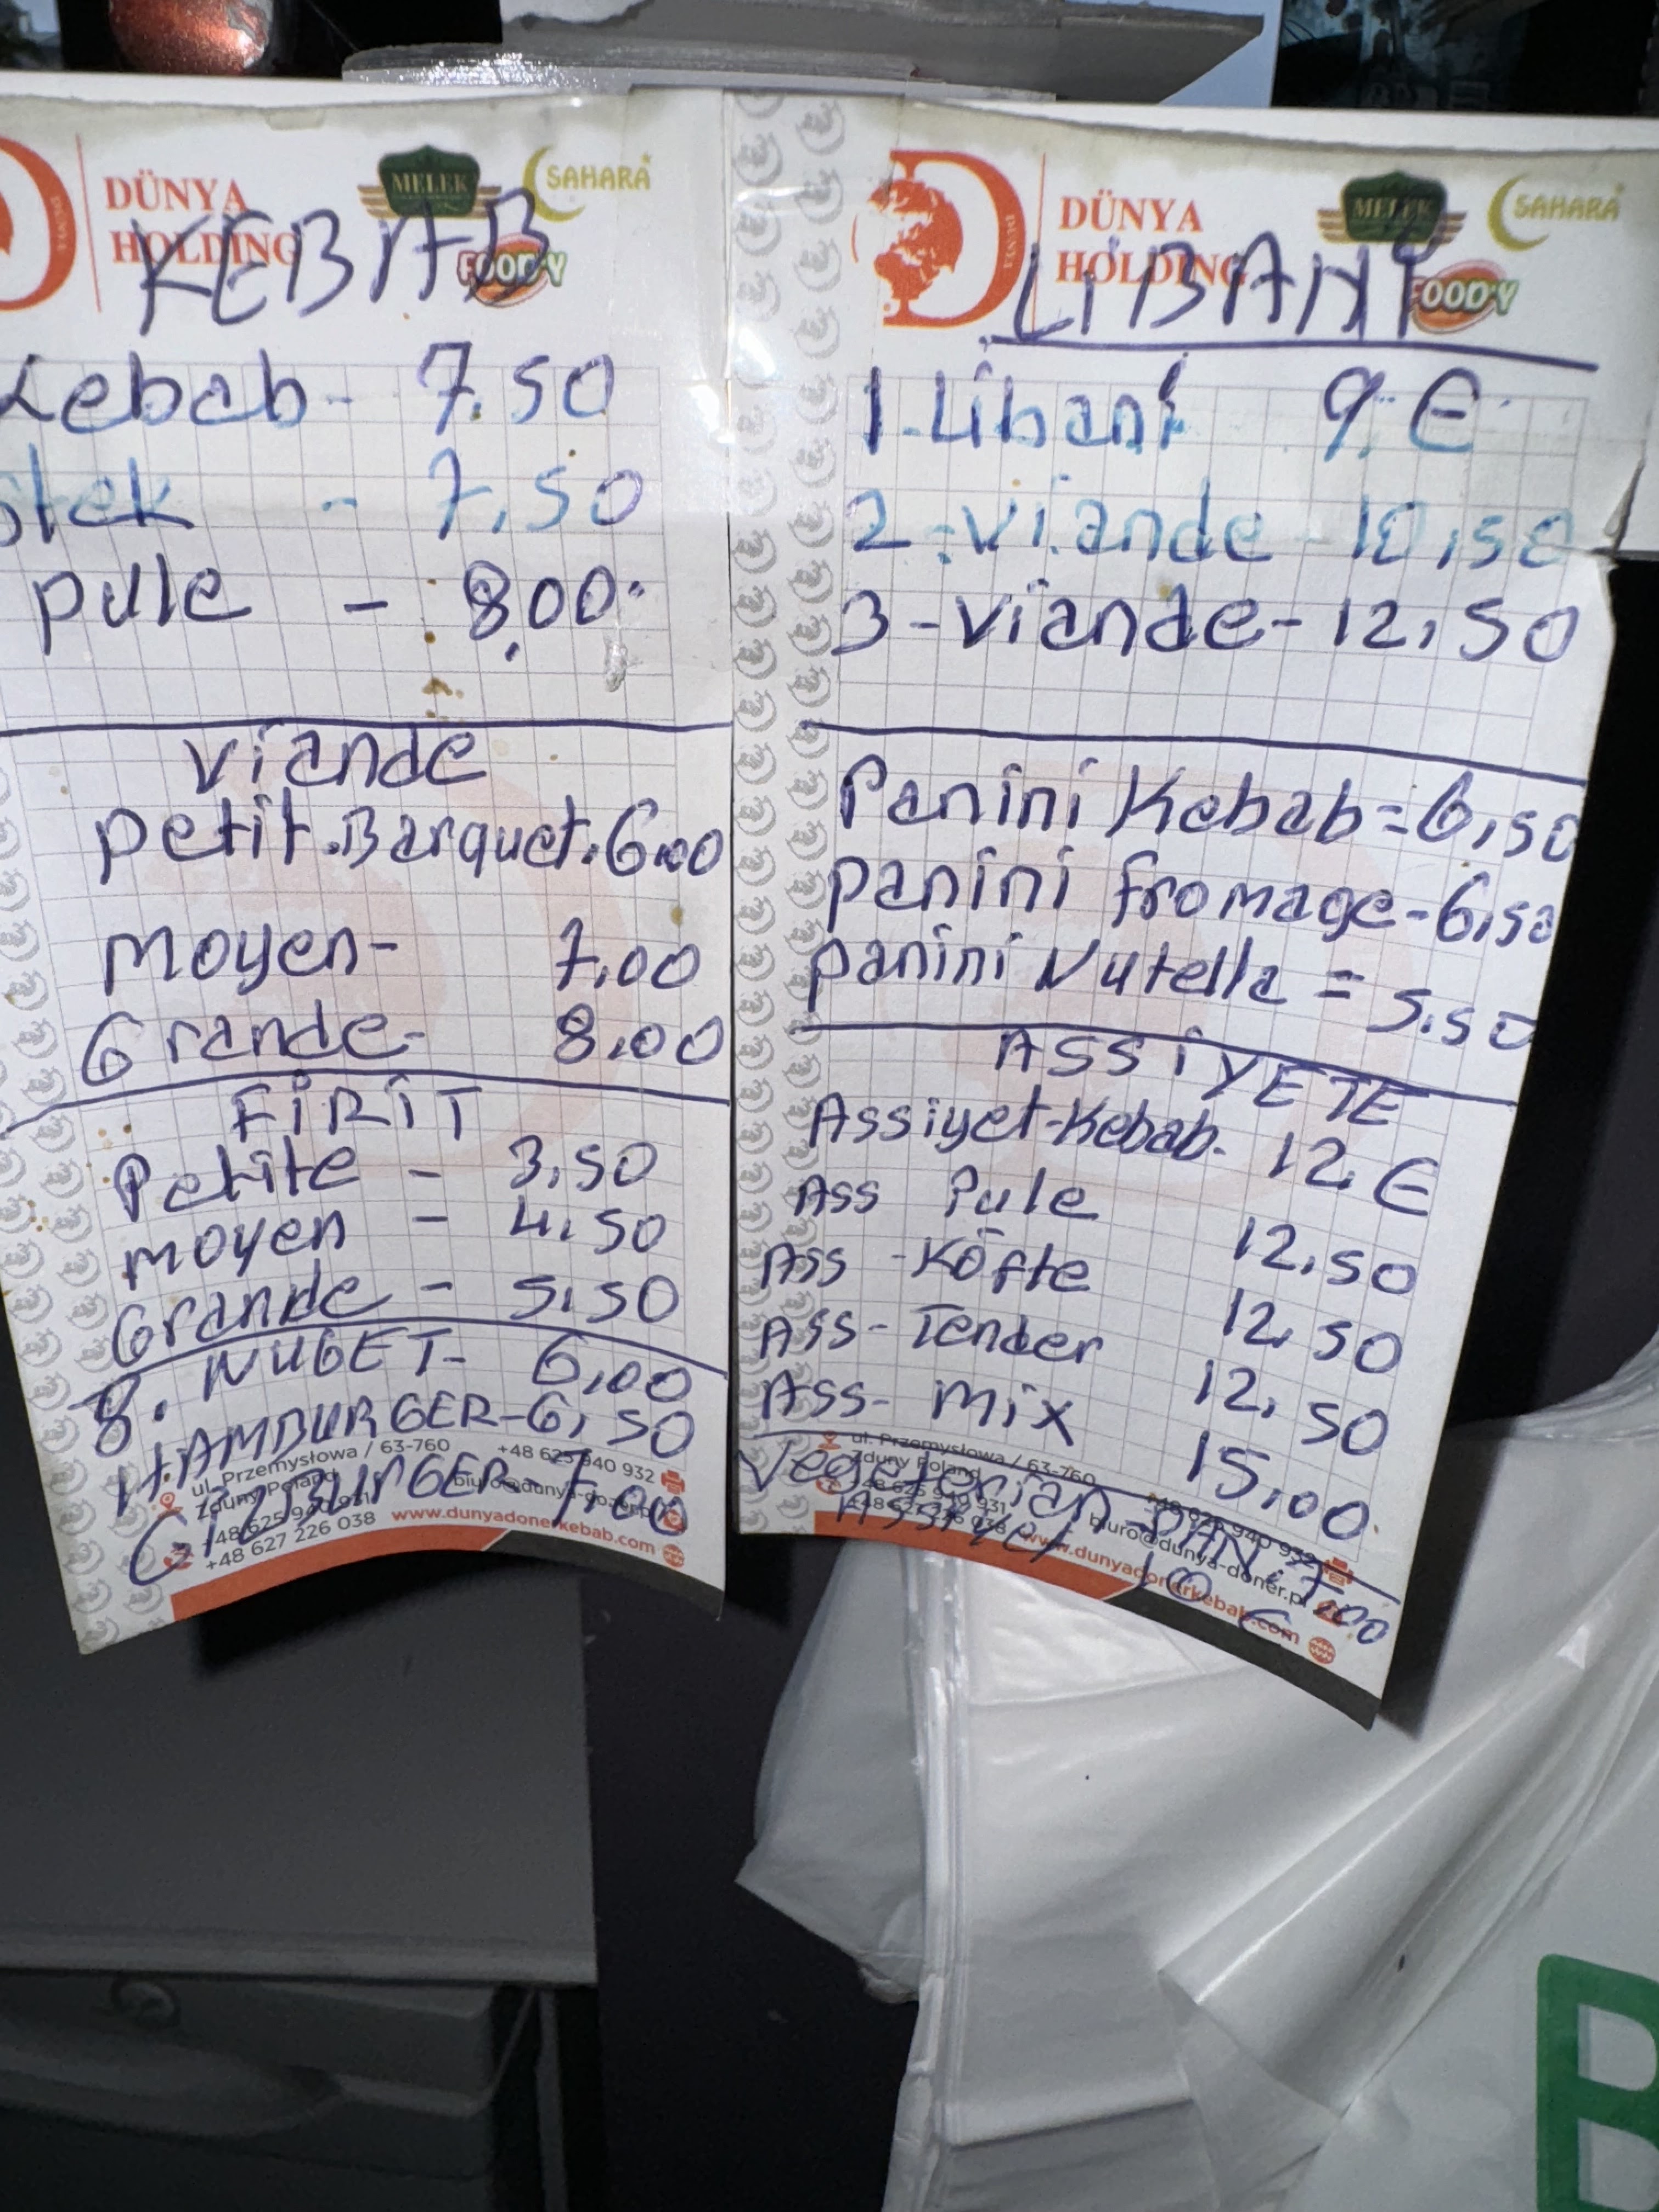 DÜNYA
HOLDING
MELEK
SAHARA
FOOD'Y
KEBAB
Kebab - 7.50
- 7,50
pule - 8,00
Viande
petit.Barquet.6.00
moyen - 7.00
Grande - 8.00
FİRİT
Petite - 3,50
moyen - 4,50
Grande - 5,50
8. NUGET - 6,00
HAMBURGER - 6,50
CİZBURGER - 7.00
ul. Przemysłowa / 63-760
Zduny Poland
+48 625 940 932
+48 627 226 038
www.dunyadonerkebab.com
DÜNYA
HOLDING
MELEK
SAHARA
FOOD'Y
LİBANİ
1-Libani 9.€
2-viande - 10,50
3-viande - 12,50
Panini Kebab = 6,50
panini fromage - 6,50
panini Nutella = 5.50
ASSİYETE
Assiyet-Kebab - 12.€
Ass Pule 12,50
Ass - Köfte 12,50
Ass - Tender 12,50
Ass - Mix 15,00
Vegeterian
Assiyet 10 €
7.00
ul. Przemysłowa / 63-760
Zduny Poland
biuro@dunya-doner.pl
www.dunyadonerkebab.com
B